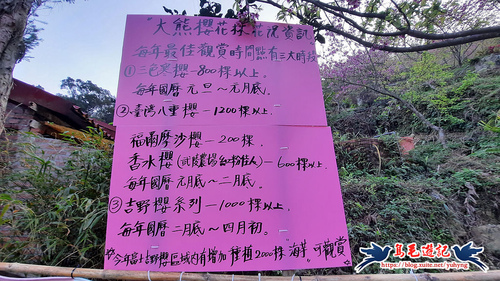 "大熊櫻花林"花況資訊
每年最佳觀賞時間點有三大時段
①三色寒櫻－800棵以上.
每年國曆元旦～元月底.
②臺灣八重櫻－1200棵以上.
福爾摩沙櫻－200棵.
香水櫻 粉佳人)－600棵以上.
每年國曆元月底～二月底.
③吉野櫻系列－1000棵以上.
每年國曆二月底～四月初。
今年吉野櫻區域內有增加種植200棵"海芋"可觀賞
烏毛遊記
https://blog.xuite.net/yuhyng